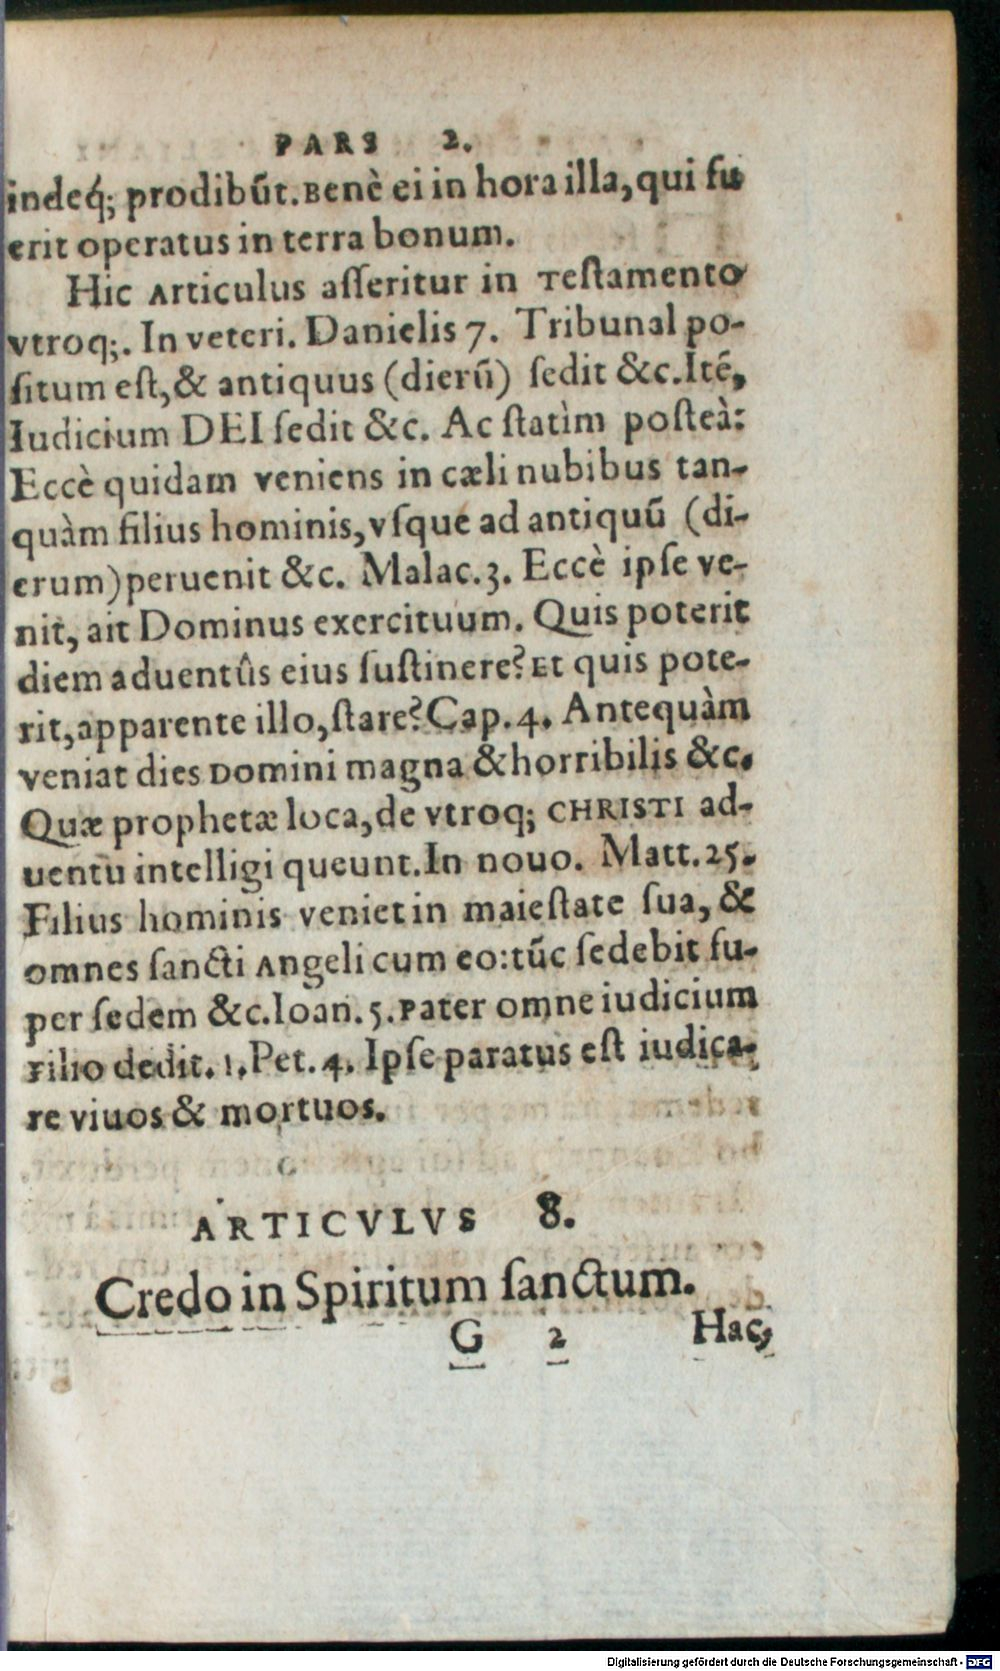 PARS 2.
indeq́; prodibūt. Benè ei in hora illa, qui fu
erit operatus in terra bonum.
Hic Articulus aſſeritur in Teſtamento
vtroq;. In veteri. Danielis 7. Tribunal po-
ſitum eſt, & antiquus (dierū) ſedit &c. Itē,
Iudicium DEI ſedit &c. Ac ſtatìm poſteà:
Eccè quidam veniens in cæli nubibus tan-
quàm filius hominis, vſque ad antiquū (di-
erum) peruenit &c. Malac. 3. Eccè ipſe ve-
nit, ait Dominus exercituum. Quis poterit
diem aduentûs eius ſuſtinere? Et quis pote-
rit, apparente illo, ſtare? Cap. 4. Antequàm
veniat dies Domini magna & horribilis &c.
Quæ prophetæ loca, de vtroq; CHRISTI ad-
uentu intelligi queunt. In nouo. Matt. 25.
Filius hominis veniet in maieſtate ſua, &
omnes ſancti Angeli cum eo: tūc ſedebit ſu-
per ſedem &c. Ioan. 5. Pater omne iudicium
Filio dedit. 1. Pet. 4. Ipſe paratus eſt iudica-
re viuos & mortuos.
ARTICVLVS 8.
Credo in Spiritum ſanctum.
G 2 Hac,
Digitalisierung gefördert durch die Deutsche Forschungsgemeinschaft - DFG